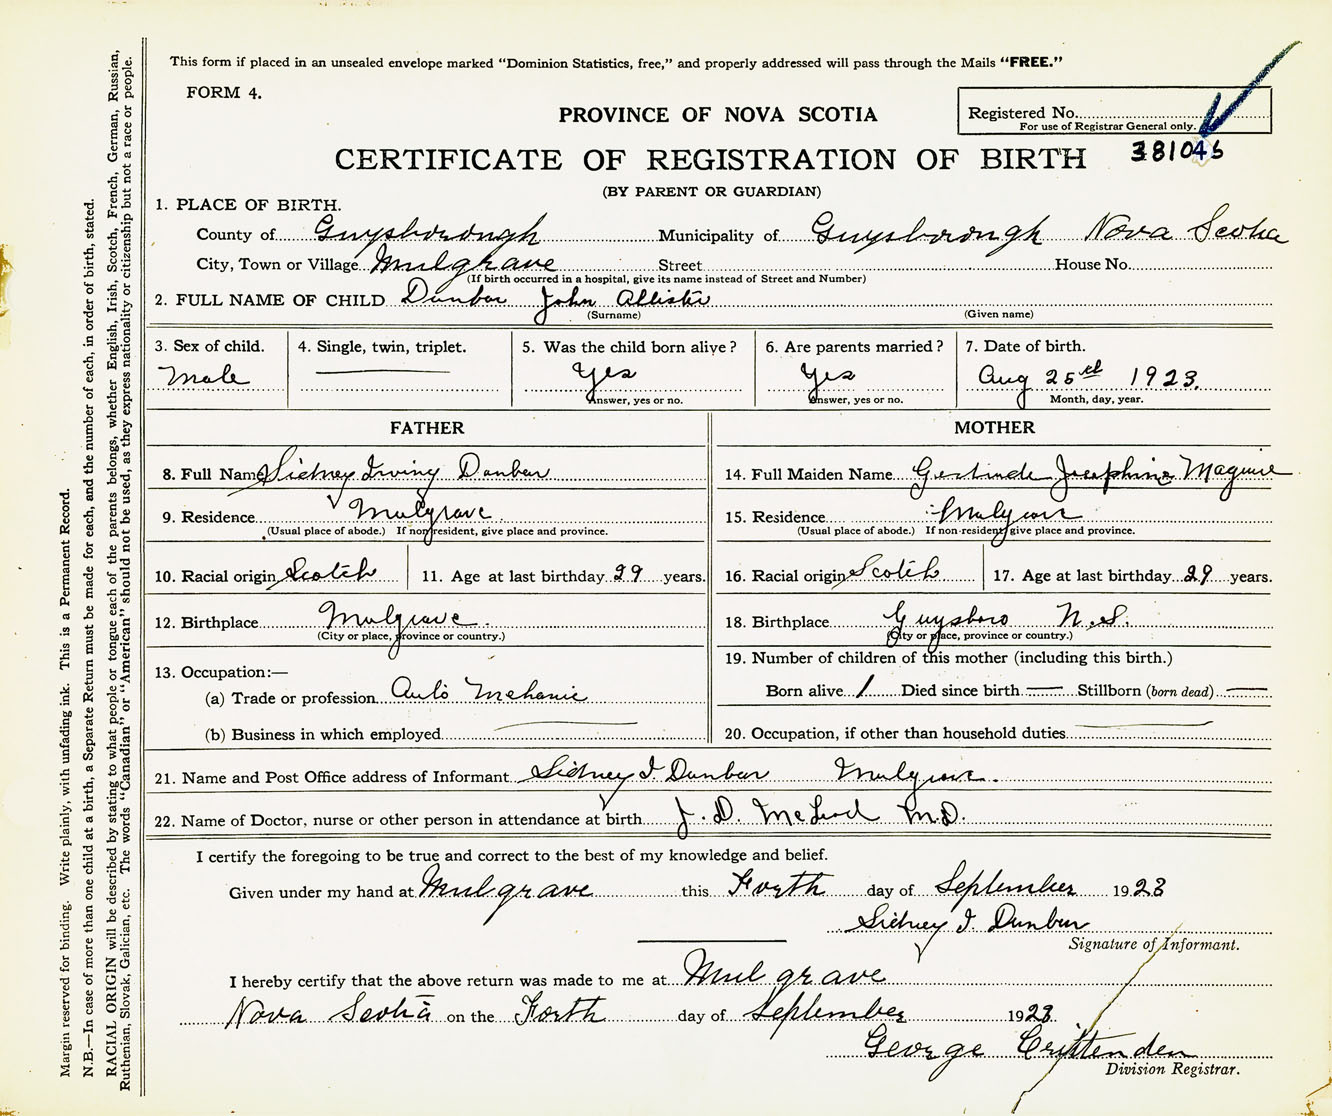 This form if placed in an unsealed envelope marked "Dominion Statistics, free," and properly addressed will pass through the Mails "FREE."
FORM 4.
PROVINCE OF NOVA SCOTIA
Registered No.
For use of Registrar General only.
CERTIFICATE OF REGISTRATION OF BIRTH
(BY PARENT OR GUARDIAN)
1. PLACE OF BIRTH.
County of Guysborough Municipality of Guysborough Nova Scotia
City, Town or Village Mulgrave Street House No.
(If birth occurred in a hospital, give its name instead of Street and Number)
2. FULL NAME OF CHILD Dunbar John Allister
(Surname) (Given name)
3. Sex of child. 4. Single, twin, triplet. 5. Was the child born alive? 6. Are parents married? 7. Date of birth.
Male Yes Yes Aug 25th 1923.
Answer, yes or no. Answer, yes or no. Month, day, year.
FATHER
8. Full Name Sidney Irving Dunbar
9. Residence Mulgrave
(Usual place of abode.) If non-resident, give place and province.
10. Racial origin Scotch 11. Age at last birthday 29 years.
12. Birthplace Mulgrave.
(City or place, province or country.)
13. Occupation:—
(a) Trade or profession Auto Mehanic
(b) Business in which employed
MOTHER
14. Full Maiden Name Gertinde Josephine Maguire
15. Residence Mulgrave
(Usual place of abode.) If non-resident, give place and province.
16. Racial origin Scotch 17. Age at last birthday 29 years.
18. Birthplace Guysboro N.S.
(City or place, province or country.)
19. Number of children of this mother (including this birth.)
Born alive 1 Died since birth — Stillborn (born dead) —
20. Occupation, if other than household duties
21. Name and Post Office address of Informant Sidney I. Dunbar Mulgrave.
22. Name of Doctor, nurse or other person in attendance at birth J. D. McLeod M.D.
I certify the foregoing to be true and correct to the best of my knowledge and belief.
Given under my hand at Mulgrave this Forth day of September 1923
Sidney I. Dunbar
Signature of Informant.
I hereby certify that the above return was made to me at Mulgrave
Nova Scotia on the Forth day of September 1923
George Crittenden
Division Registrar.
Margin reserved for binding. Write plainly, with unfading ink. This is a Permanent Record.
N.B.—In case of more than one child at a birth, a Separate Return must be made for each, and the number of each, in order of birth, stated.
RACIAL ORIGIN will be described by stating to what people or tongue each of the parents belongs, whether English, Irish, Scotch, French, German, Russian,
Ruthenian, Slovak, Galician, etc. The words "Canadian" or "American" should not be used, as they express nationality or citizenship but not a race or people.